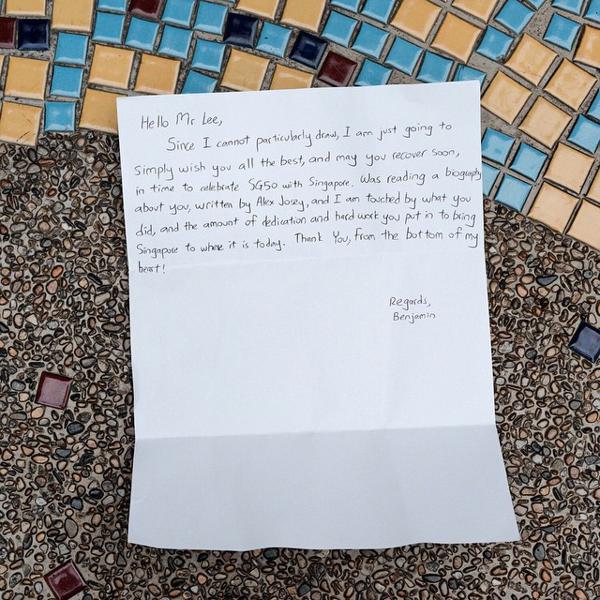 Hello Mr Lee,
Since I cannot particularly draw, I am just going to
simply wish you all the best, and may you recover soon,
in time to celebrate SG50 with Singapore. Was reading a biography
about you, written by Alex Josey, and I am touched by what you
did, and the amount of dedication and hard work you put in to bring
Singapore to where it is today. Thank You, from the bottom of my
heart!
Regards,
Benjamin